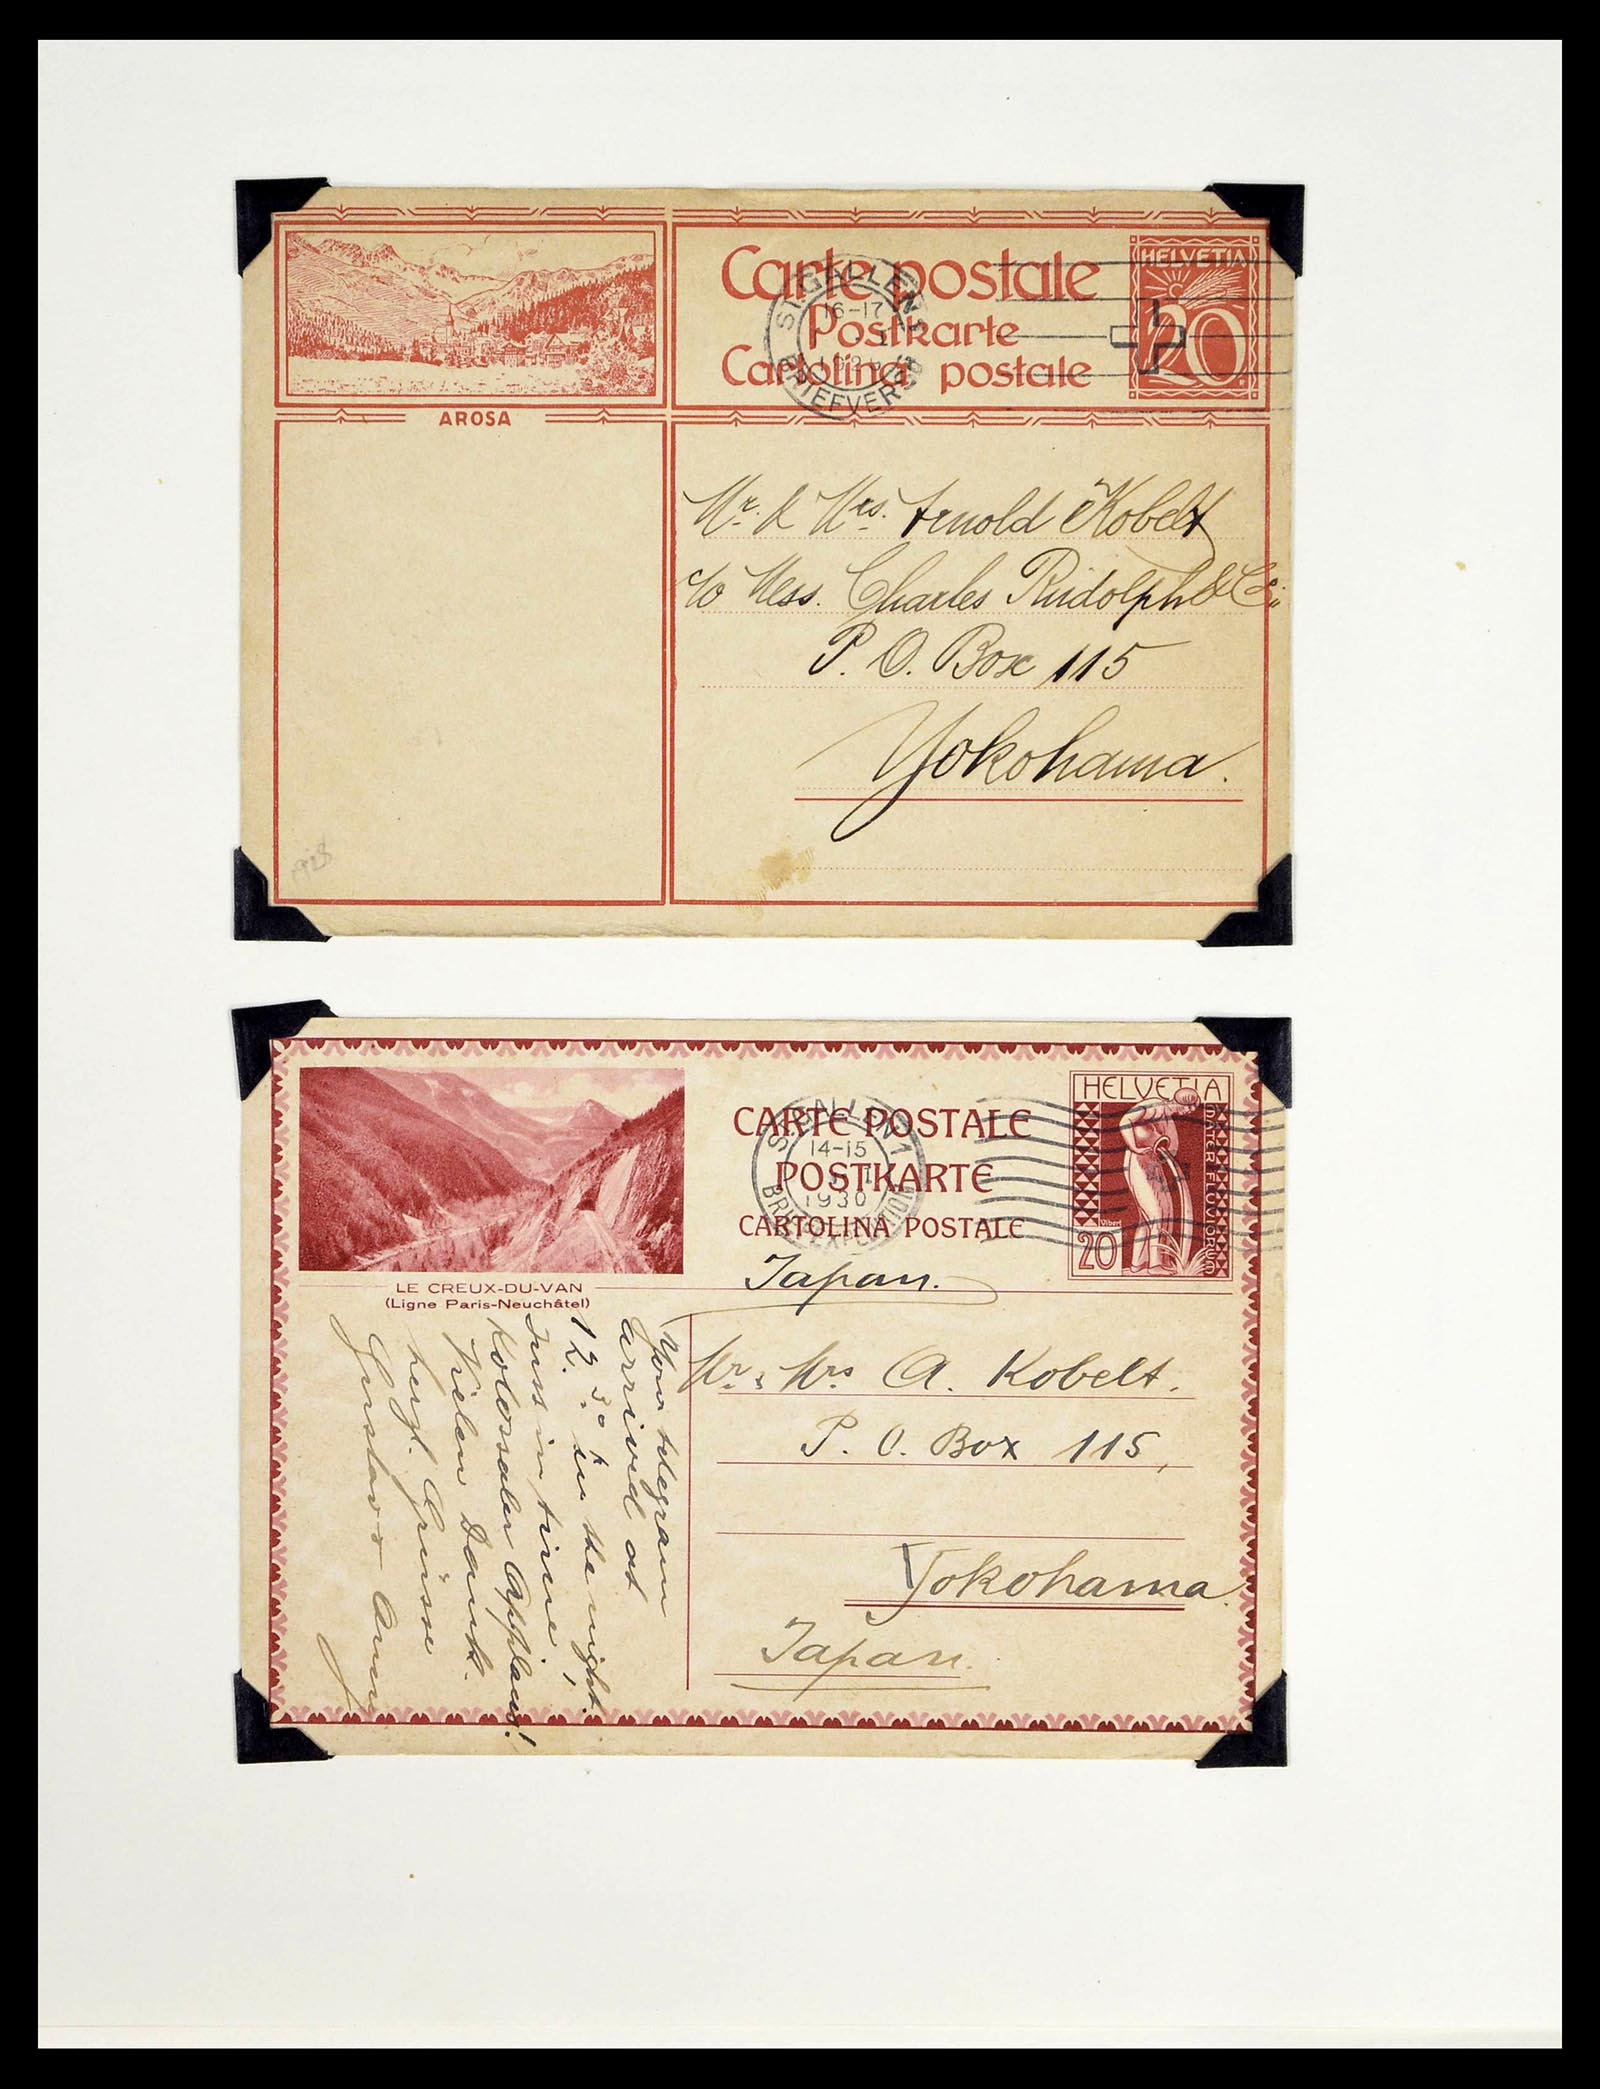 AROSA
Carte postale
Postkarte
Cartolina postale
ST. GALLEN 1
16-17
BRIEFVERS
HELVETIA
20
Mr. & Mrs. Arnold Kobelt
c/o Mess. Charles Rudolph & Co.
P. O. Box 115
Yokohama.
LE CREUX-DU-VAN
(Ligne Paris-Neuchâtel)
CARTE POSTALE
POSTKARTE
CARTOLINA POSTALE
ST. GALLEN 1
14-15
1930
BRIEFEXPEDITION
HELVETIA
MATER FLUVIORUM
Vibert
20
Japan.
Mr. & Mrs A. Kobelt.
P. O. Box 115,
Yokohama.
Japan.
Your telegram
arrived at
12.30 h in the night.
Just in time,
Kolossaler Applaus!
Vielen Dank.
herzl. Grüsse
Gustav + Anny